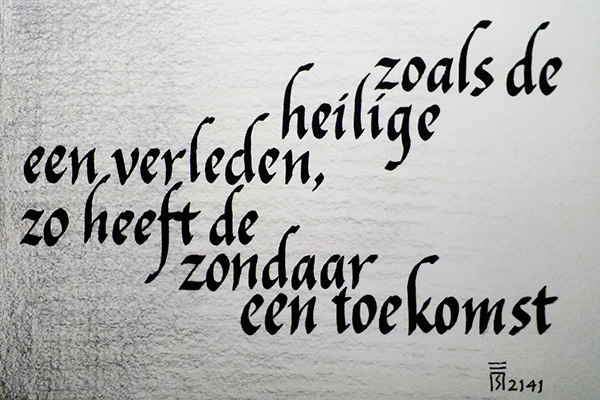 zoals de
heilige
een verleden,
zo heeft de
zondaar
een toekomst
2141